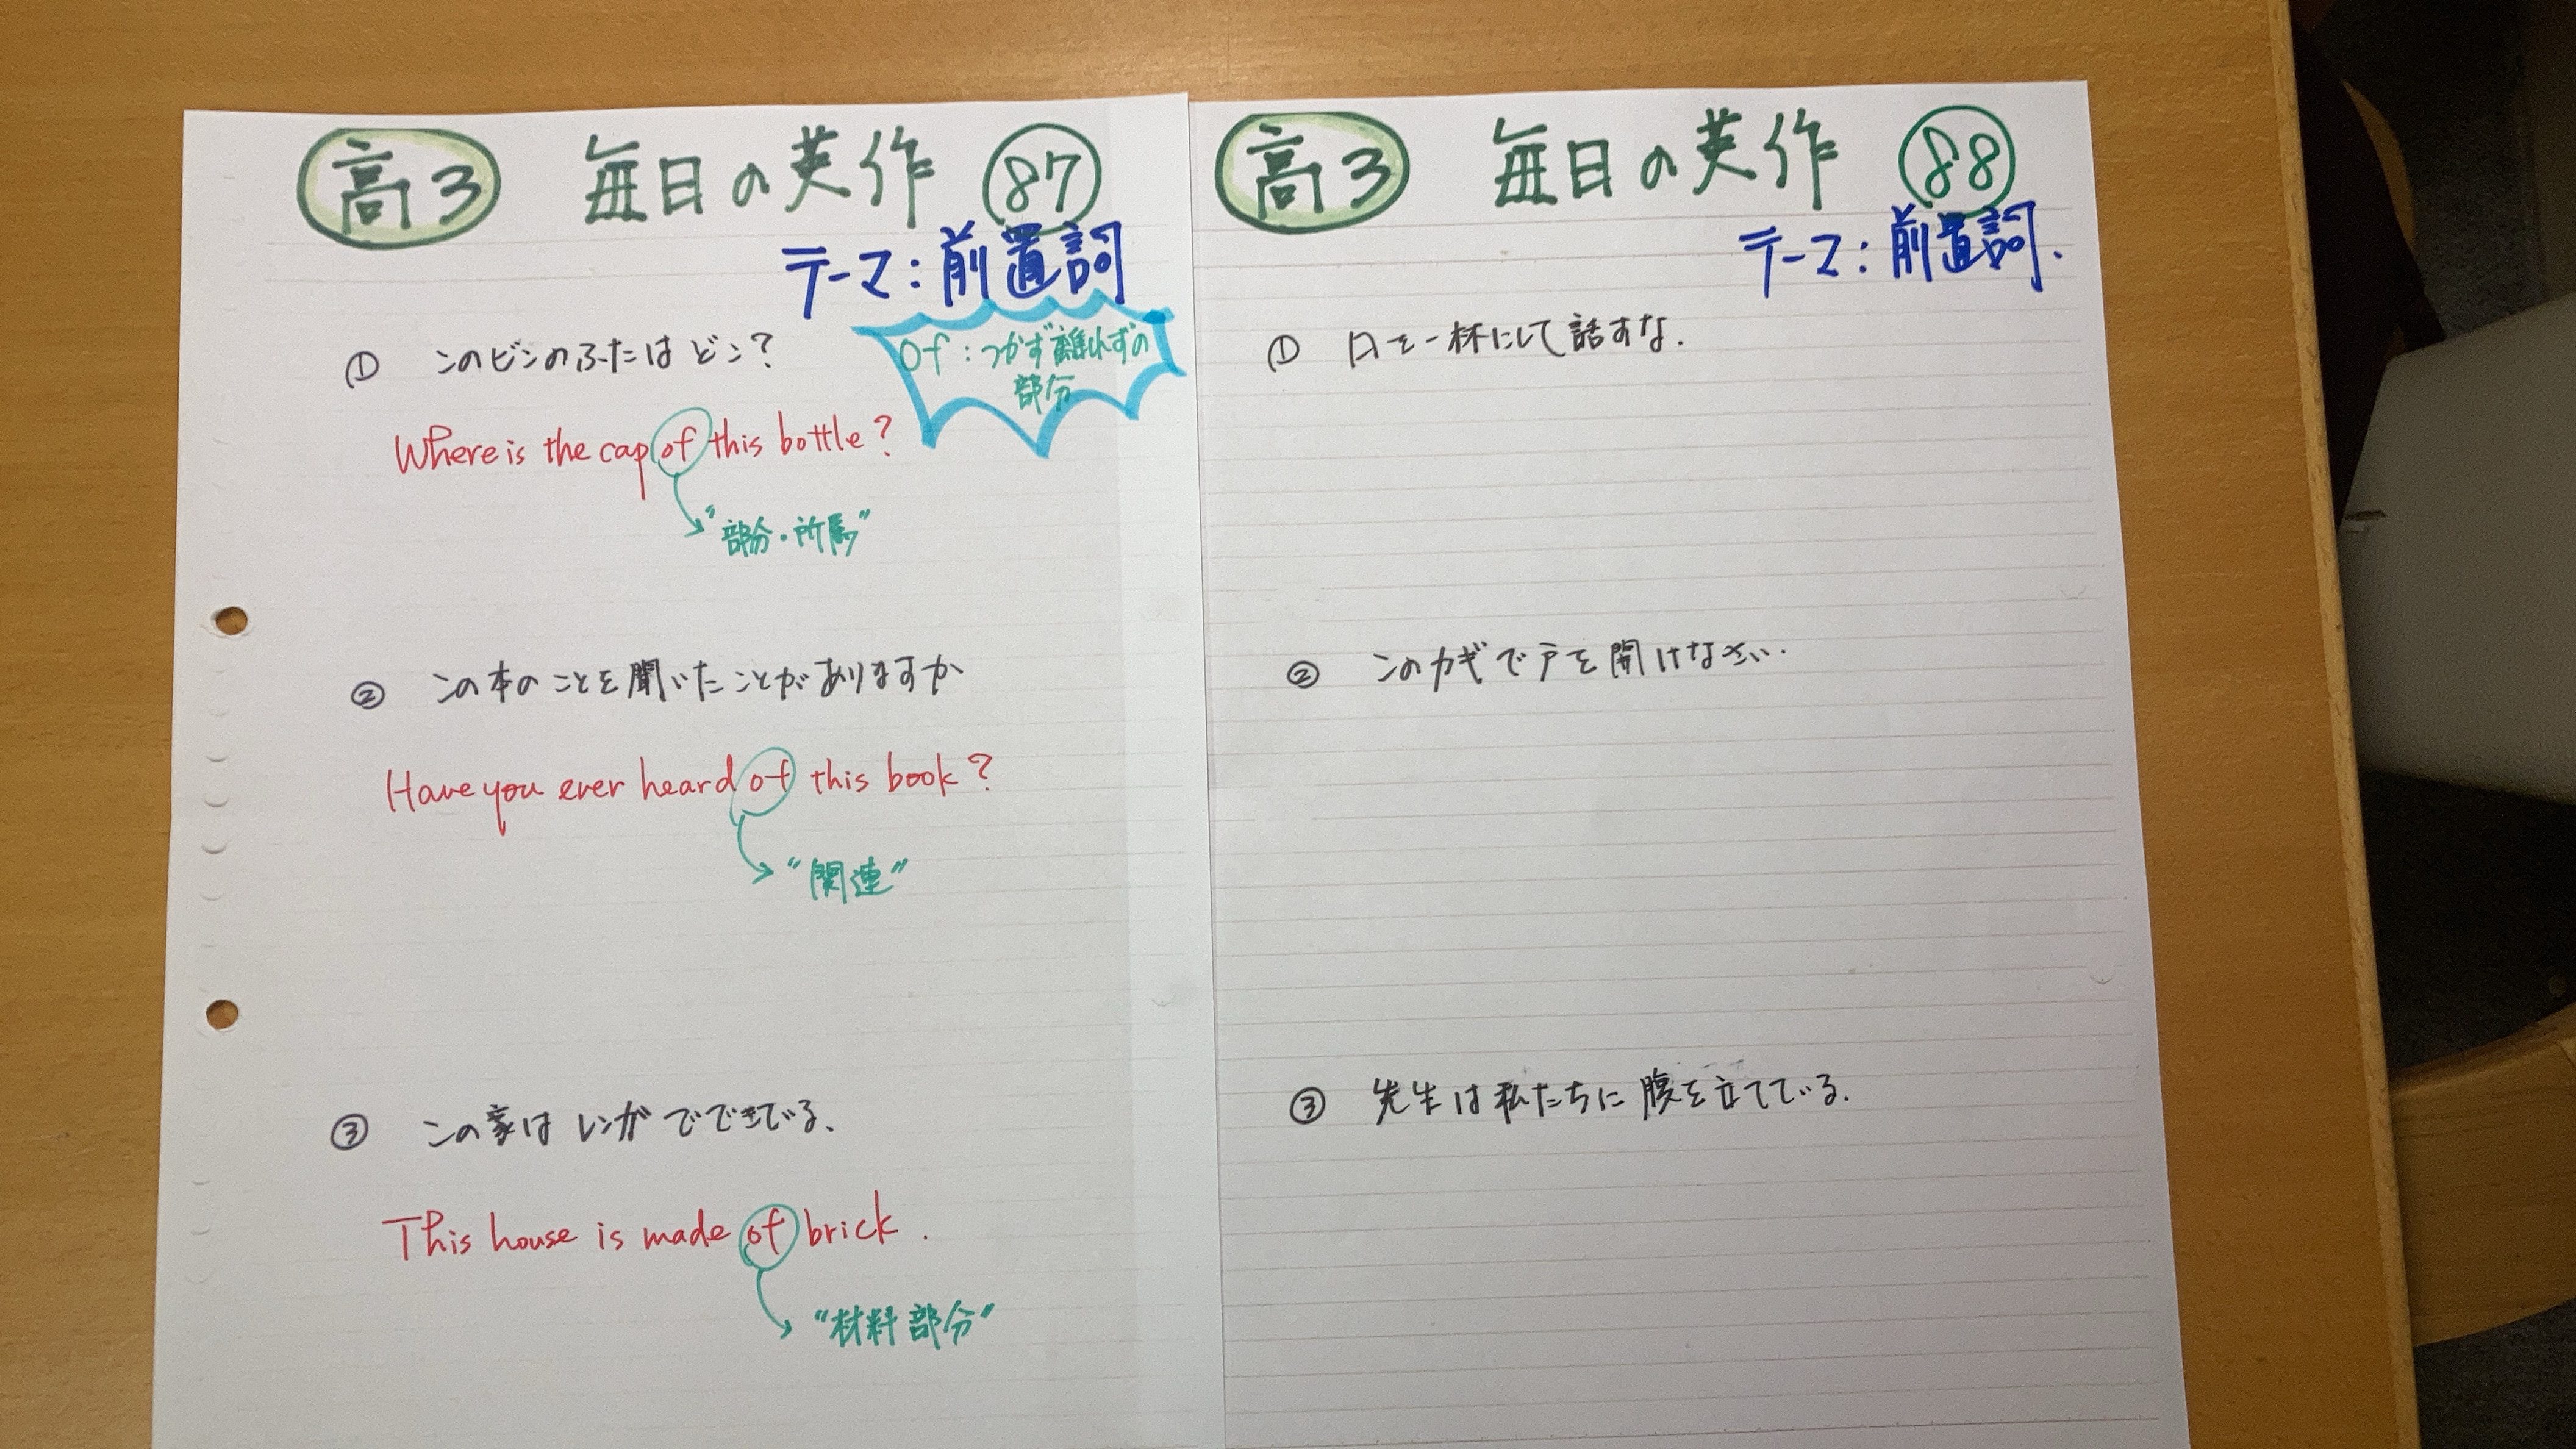 高3 毎日の英作 87
テーマ:前置詞
of:つかず離れずの
部分
① このビンのふたは どこ?
Where is the cap of this bottle?
"部分・所属"
② この本のことを聞いたことがありますか
Have you ever heard of this book?
"関連"
③ この家は レンガ でできている.
This house is made of brick.
"材料部分"
高3 毎日の英作 88
テーマ:前置詞.
① 口を一杯にして話すな.
② このカギで戸を開けなさい.
③ 先生は私たちに腹を立てている.